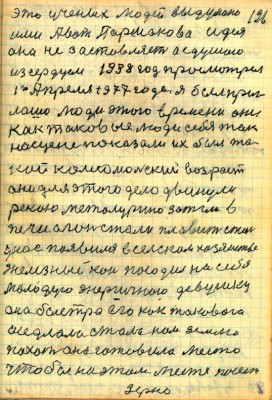 это ученых людей выдумано 126
или Авот Паршакова идея
она не заставляет а слушаю
и следую 1938 год просмотрел
1го Апреля 1977 года. Я был приг
лашо люди этого времени они
как таковые люди себя так
на сцене показали их был та
кой комсомольский возраст
они для этого дело двинули
рекою
печи они стали плавить стал
у нас появился в селском хозяистве
железный кон посодил на себя
молодую энергичною девушку
она быстро его как такового
оседлала стала нам землю
пахат она готовила место
чтобы на этом месте посеят
Зерно 8